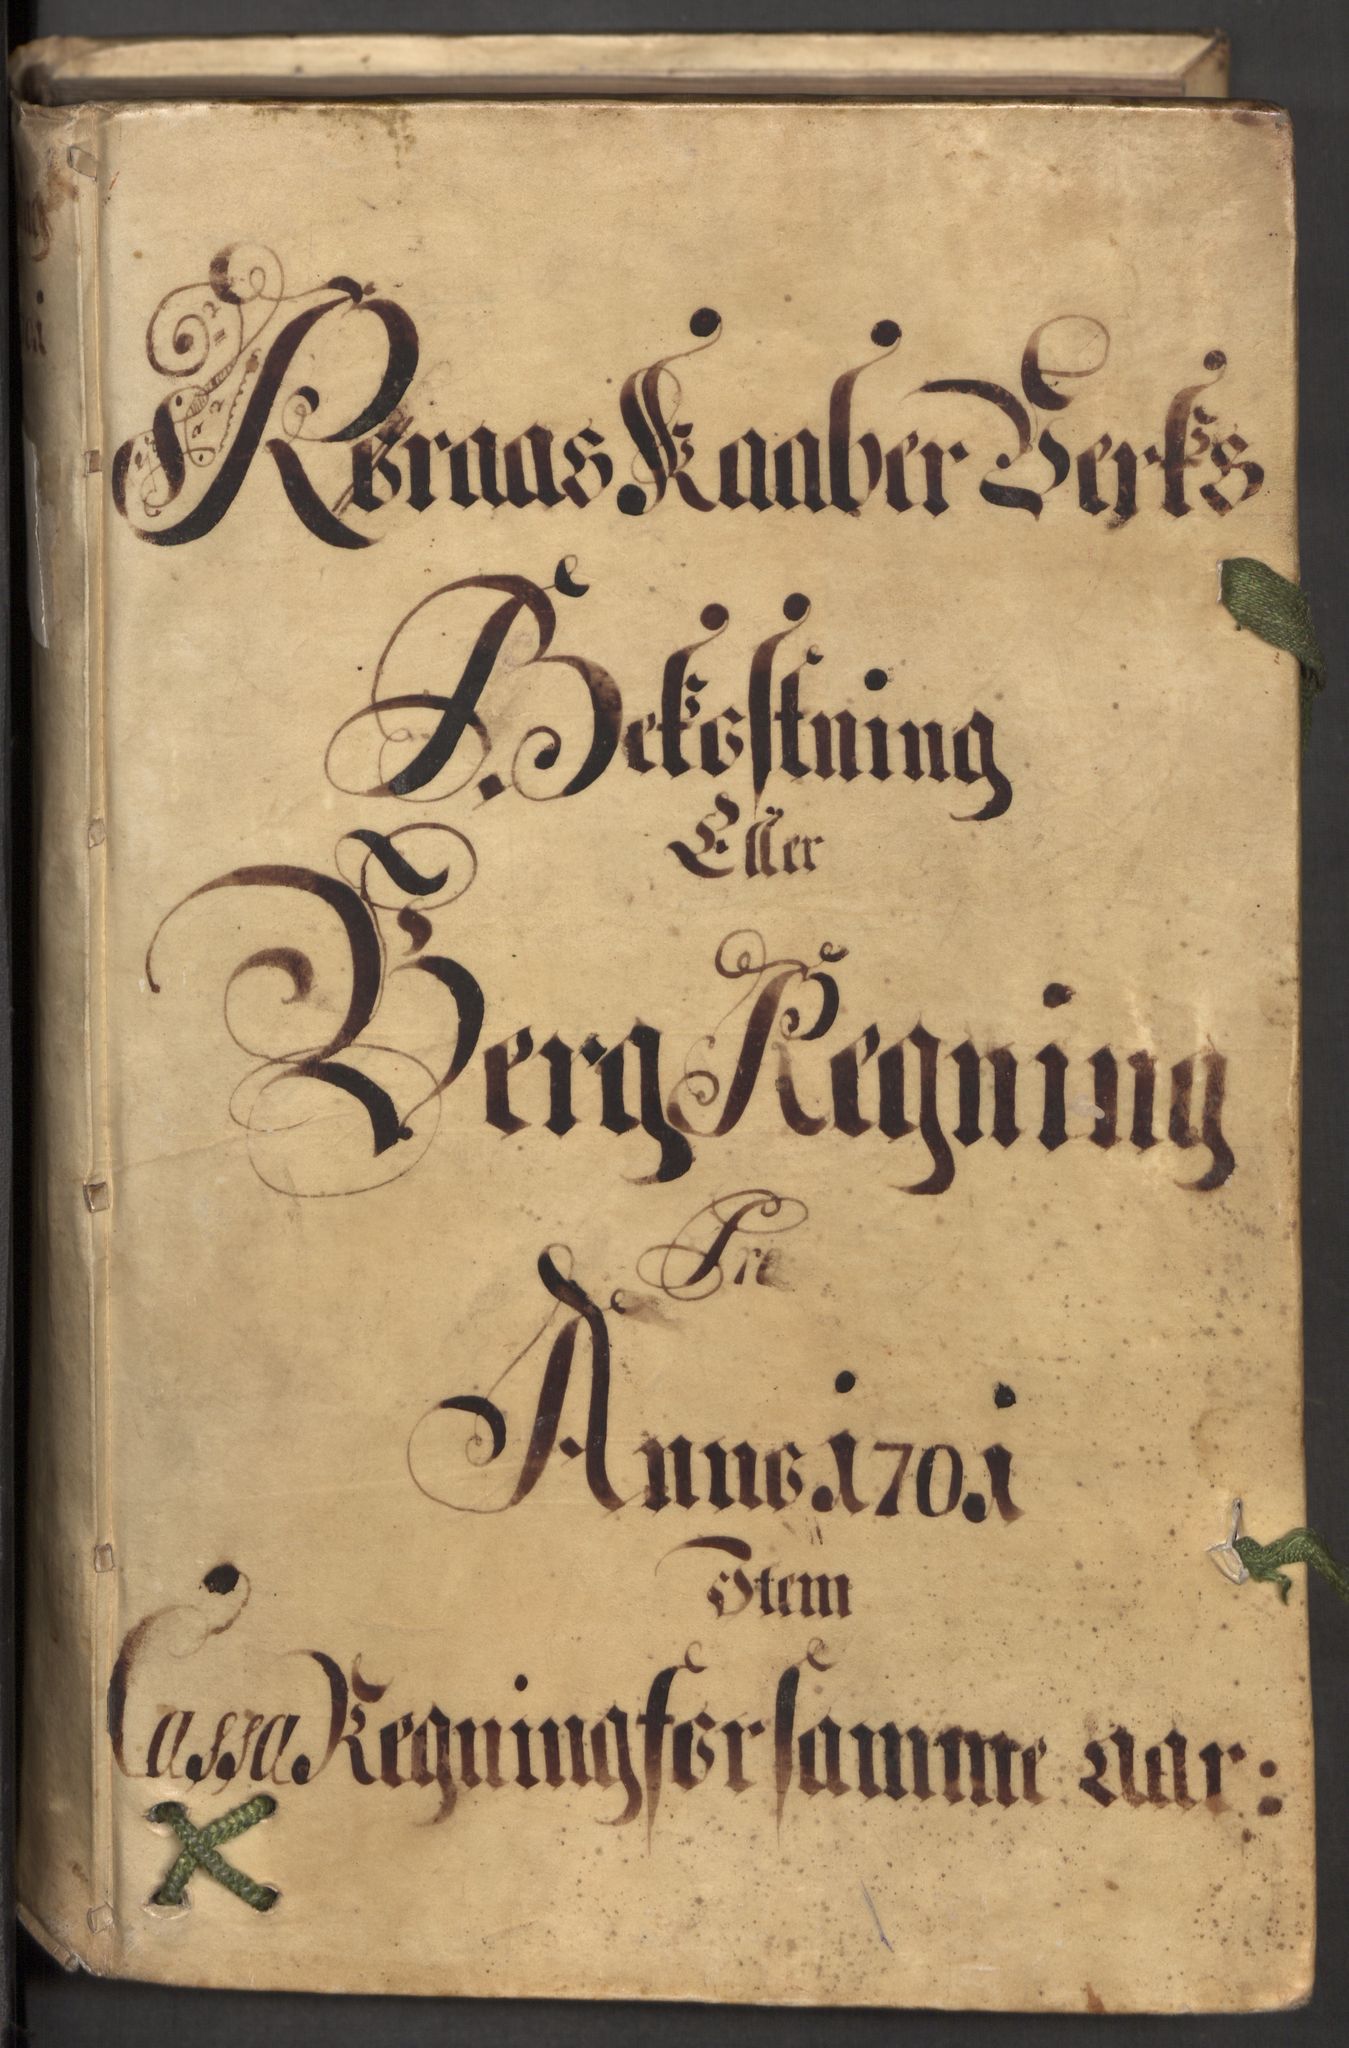 Røraas Kaaber Verks
Bekostning
Eller
Berg Regning
Pro
Anno 1701
Item
Cassa Regning for samme Aar: